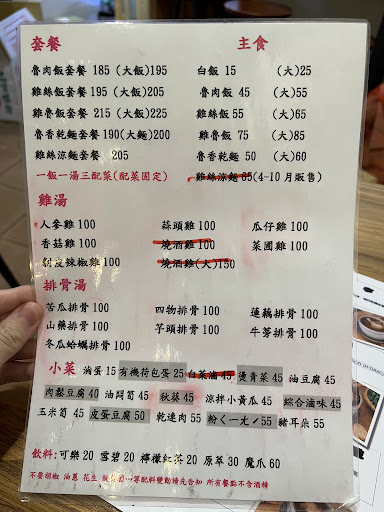 套餐 主食
魯肉飯套餐 185 (大飯)195 白飯 15 (大)25
雞絲飯套餐 195 (大飯)205 魯肉飯 45 (大)55
雞魯飯套餐 215 (大飯)225 雞絲飯 55 (大)65
魯香乾麵套餐190(大麵)200 雞魯飯 75 (大)85
雞絲涼麵套餐 205 魯香乾麵 50 (大)60
一飯一湯三配菜(配菜固定) 雞絲涼麵 65(4-10月販售)
雞湯
人參雞 100 蒜頭雞 100 瓜仔雞 100
香菇雞 100 燒酒雞 100 菜圃雞 100
剝皮辣椒雞 100 燒酒雞(大)150
排骨湯
苦瓜排骨 100 四物排骨 100 蓮藕排骨 100
山藥排骨 100 芋頭排骨 100 牛蒡排骨 100
冬瓜蛤蠣排骨 100
小菜 滷蛋 15 有機荷包蛋 25 白菜滷 45 燙青菜 45 油豆腐 45
肉鬆豆腐 40 油悶筍 45 秋葵 45 涼拌小黃瓜 45 綜合滷味 45
玉米筍 45 皮蛋豆腐 50 乾連肉 55 粉ㄑㄧㄤˊ55 豬耳朵 55
飲料:可樂 20 雪碧 20 檸檬紅茶 20 原萃 30 魔爪 60
不要胡椒 油蔥 花生 酸菜…等配料變動請先告知 所有餐點不含酒精